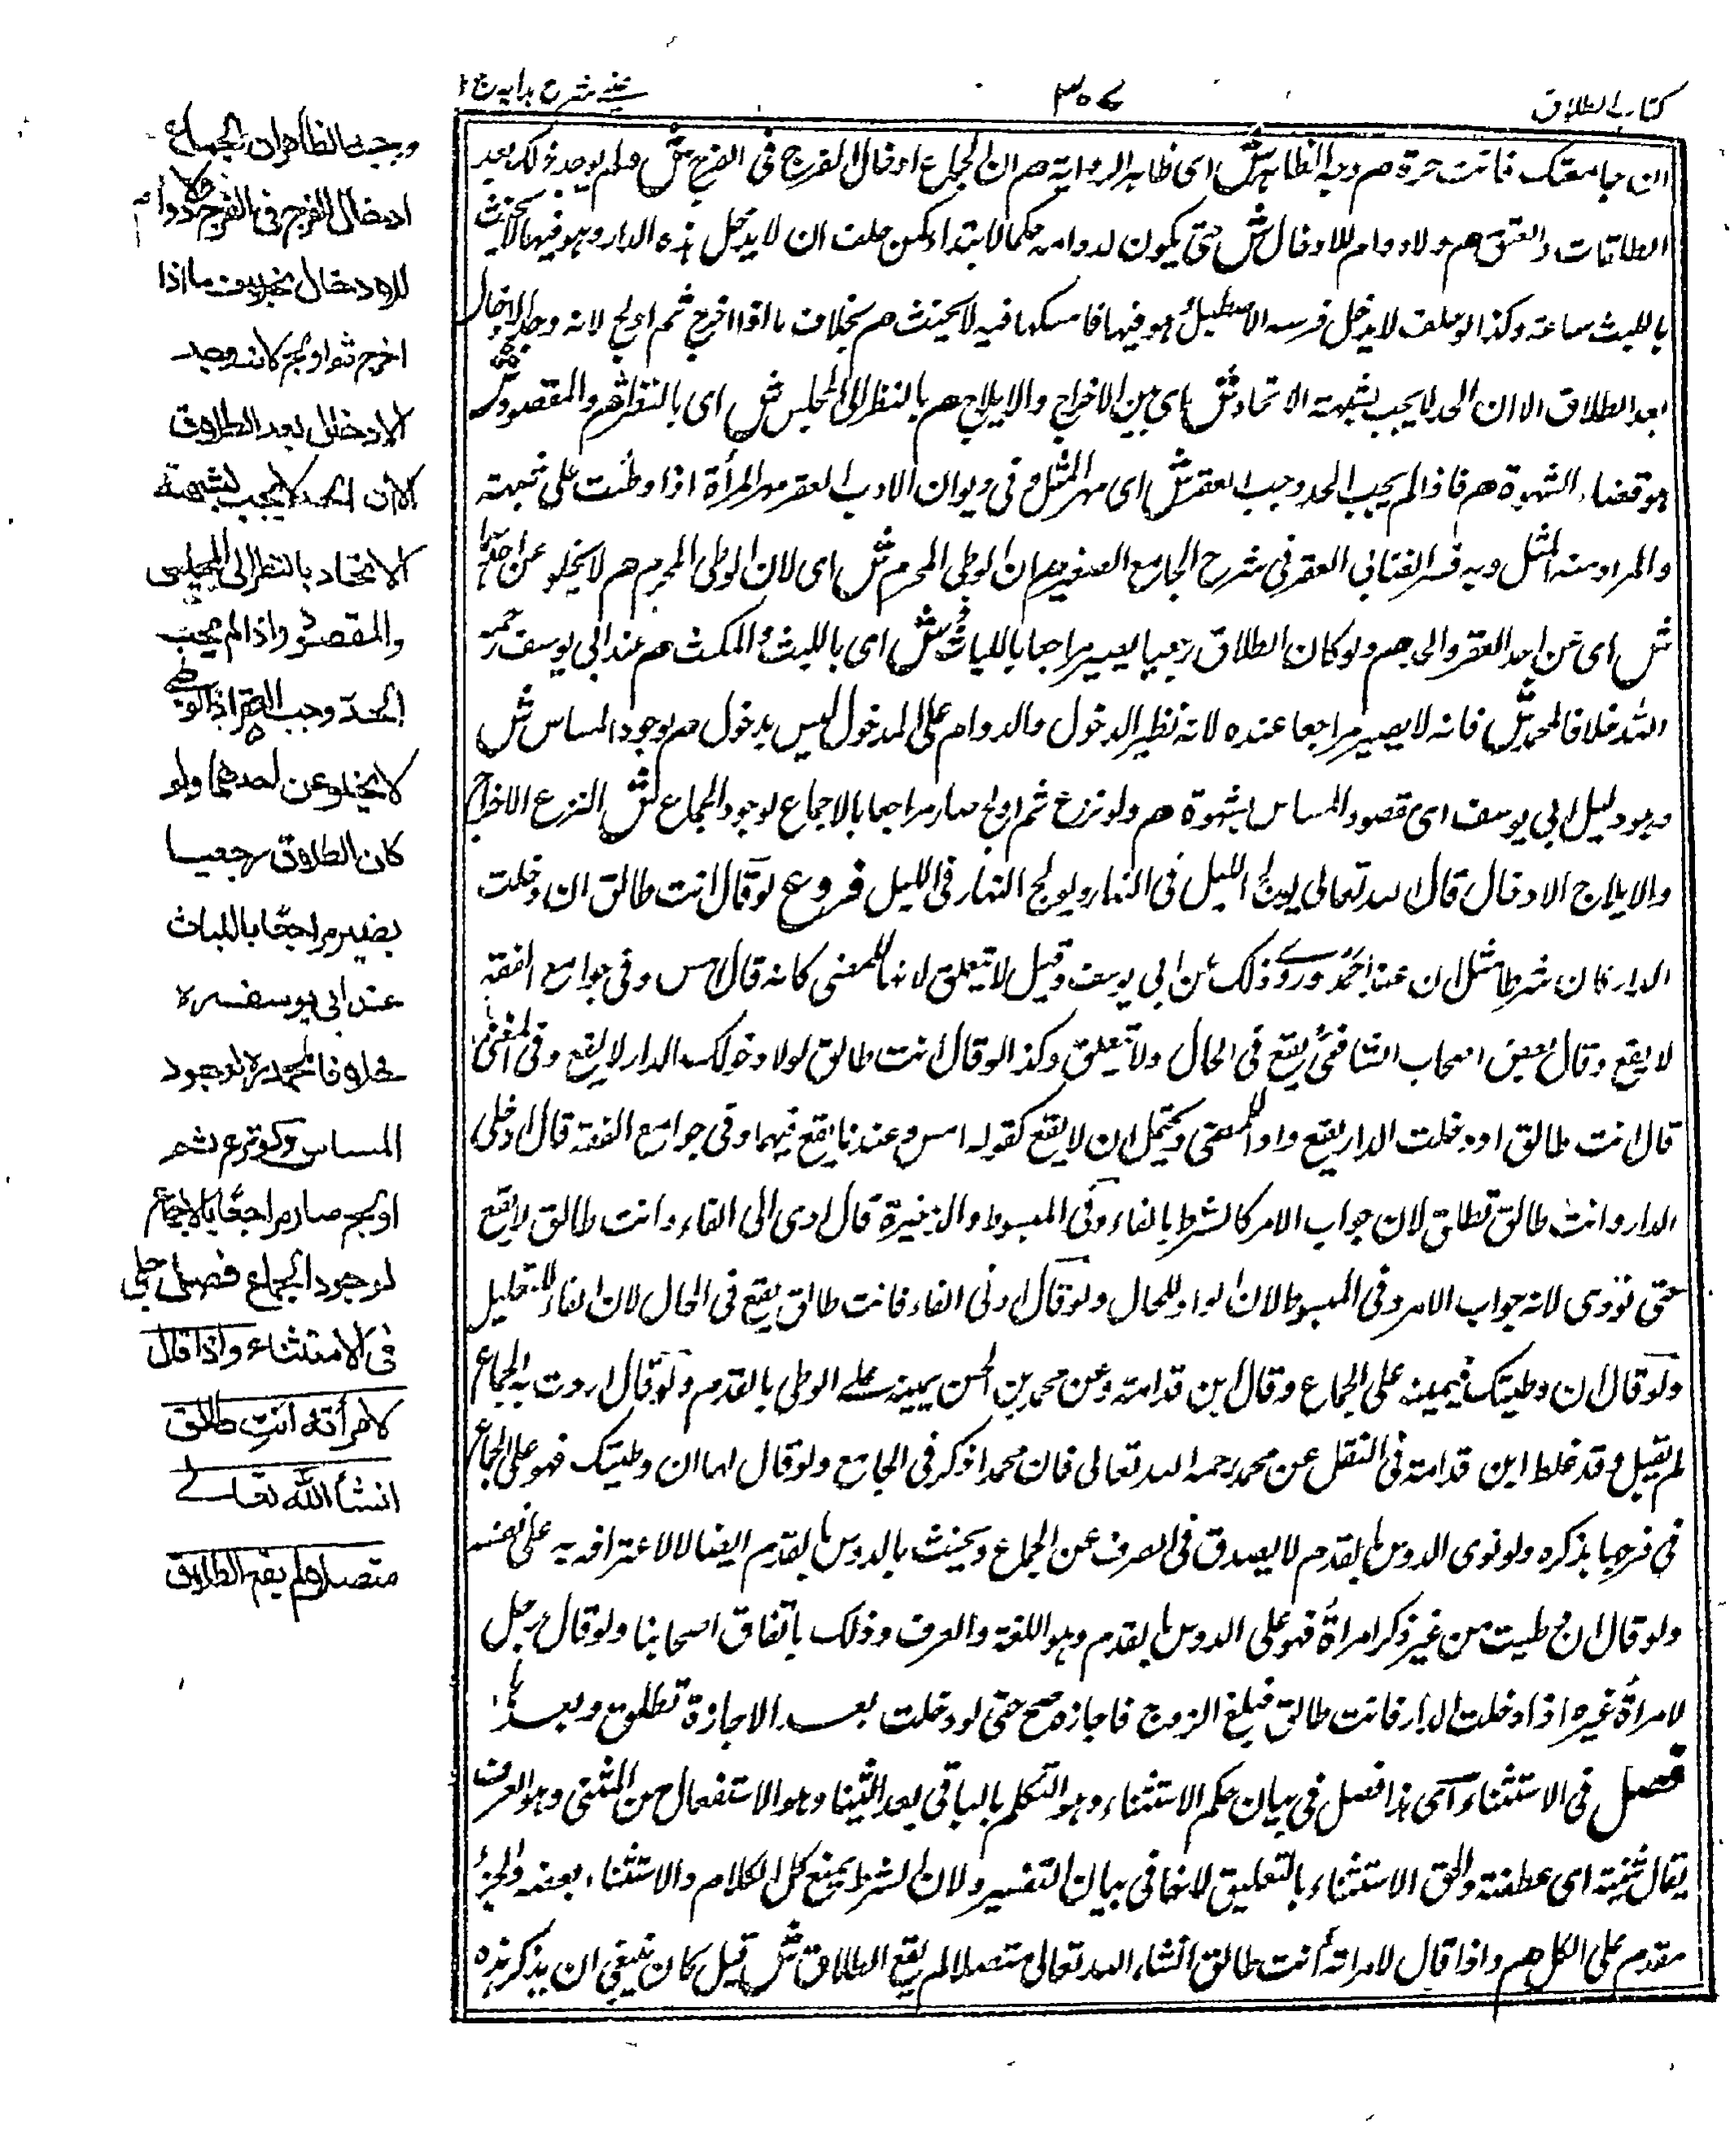 كتاب الطلاق
٣٠٤
عينى شرح هدايه ج ١
ان جامعتك فانت حرة هم وجه الظاهر ش اى ظاهر الرواية هم ان الجماع ادخال الفرج فى الفرج ش ولم يوجد ذلك بعد
الطلقات والعتق هم ولا دوام للادخال ش حتى يكون لدوامه حكم الابتداء كمن حلف ان لا يدخل هذه الدار وهو فيها لا يحنث
باللبث ساعة وكذا لو حلف لا يدخل فرسه الاصطبل وهو فيها فامسكها فيه لا يحنث هم بخلاف ما اذا اخرج ثم اولج لانه وجد الادخال
بعد الطلاق الا ان الحد لا يجب بشبهة الاتحاد ش اى بين الاخراج والايلاج هم بالنظر الى المجلس ش اى بالنظر هم والمقصود ش
هو قضاء الشهوة هم فاذا لم يجب الحد وجب العقر ش اى مهر المثل وفى ديوان الادب العقر مهر المرأة اذا وطئت على شبهة
والمراد منه المثل وبه فسر العتابى العقر فى شرح الجامع الصغير هم ان الوطى المحرم ش اى لان الوطى المحرم هم لا يخلو عن احدهما
ش اى عن احد العقر والحد هم ولو كان الطلاق رجعيا يصير مراجعا باللباث ش اى باللبث والمكث هم عند ابى يوسف رحمه
الله خلافا لمحمد ش فانه لا يصير مراجعا عنده لانه نظير الدخول والدوام على المدخول ليس بدخول هم لوجود المساس ش
وهو دليل ابى يوسف اى قصود المساس بشهوة هم ولو نزع ثم اولج صار مراجعا بالاجماع لوجود الجماع ش النزع الاخراج
والايلاج الادخال قال الله تعالى يولج الليل فى النهار ويولج النهار فى الليل فروع لو قال انت طالق ان دخلت
الدار كان شرطا مثل ان عند احمد وروى ذلك عن ابى يوسف وقيل لا تتعلق لانها للمعنى كانه قال امس وفى جوامع الفقه
لا يقع وقال بعض اصحاب الشافعى يقع فى الحال ولا تعلق وكذا لو قال انت طالق لولا دخولك الدار لا يقع وفى المغنى
قال انت طالق او دخلت الدار يقع واو للمعنى ويحتمل ان لا يقع كقوله امس وعندنا يقع فيهما وفى جوامع الفقه قال ادخلى
الدار وانت طالق تطلق لان جواب الامر كالشرط بالفاء وفى المبسوط والذخيرة قال ادى الى الفاء وانت طالق لا يقع
حتى تؤدى لانه جواب الامر وفى المبسوط لان الواو للحال ولو قال ادى الفاء فانت طالق يقع فى الحال لان الفاء للتعليل
ولو قال ان وطيتك فيمينه على الجماع وقال ابن قدامة وعن محمد بن الحسن يمينه على الوطى بالقدم ولو قال اردت به الجماع
لم يقبل وقد غلط ابن قدامة فى النقل عن محمد رحمه الله تعالى فان محمدا ذكر فى الجامع ولو قال لها ان وطيتك فهو على الجماع
فى فرجها بذكره ولو نوى الدوس بالقدم لا يصدق فى الصرف عن الجماع ويحنث بالدوس بالقدم ايضا لاعترافه به على نفسه
ولو قال ان وطيت من غير ذكر امرأة فهو على الدوس بالقدم وهو اللغة والعرف وذلك باتفاق اصحابنا ولو قال رجل
لامرأة غيره اذا دخلت الدار فانت طالق فبلغ الزوج فاجازه صح حتى لو دخلت بعد الاجازة تطلق
فصل فى الاستثناء ش اى هذا فصل فى بيان حكم الاستثناء وهو التكلم بالباقى بعد الثنيا وهو الاستفعال من الثنى وهو الصرف
يقال ثنيته اى عطفته والحق الاستثناء بالتعليق لانها فى بيان التفسير ولان الشرط يمنع كل الكلام والاستثناء بعضه والجزء
مقدم على الكل هم واذا قال لامرأته انت طالق انشاء الله تعالى متصلا لم يقع الطلاق ش قيل كان ينبغى ان يذكر هذه
وجه الظاهر ان الجماع
ادخال الفرج فى الفرج ولا دوام
للادخال بخلاف ما اذا
اخرج ثم اولج لانه وجد
الادخال بعد الطلاق
الا ان الحد لا يجب بشبهة
الاتحاد بالنظر الى المجلس
والمقصود واذا لم يجب
الحد وجب العقر اذ الوطى
لا يخلو عن احدهما ولو
كان الطلاق رجعيا
يصير مراجعًا باللباث
عند ابى يوسف ره
خلافا لمحمد ره لوجود
المساس ولو نزع ثم
اولج صار مراجعًا بالاجماع
لوجود الجماع فصل
فى الاستثناء واذا قال
لامرأته انتِ طالق
انشاء الله تعالى
متصلا لم يقع الطلاق